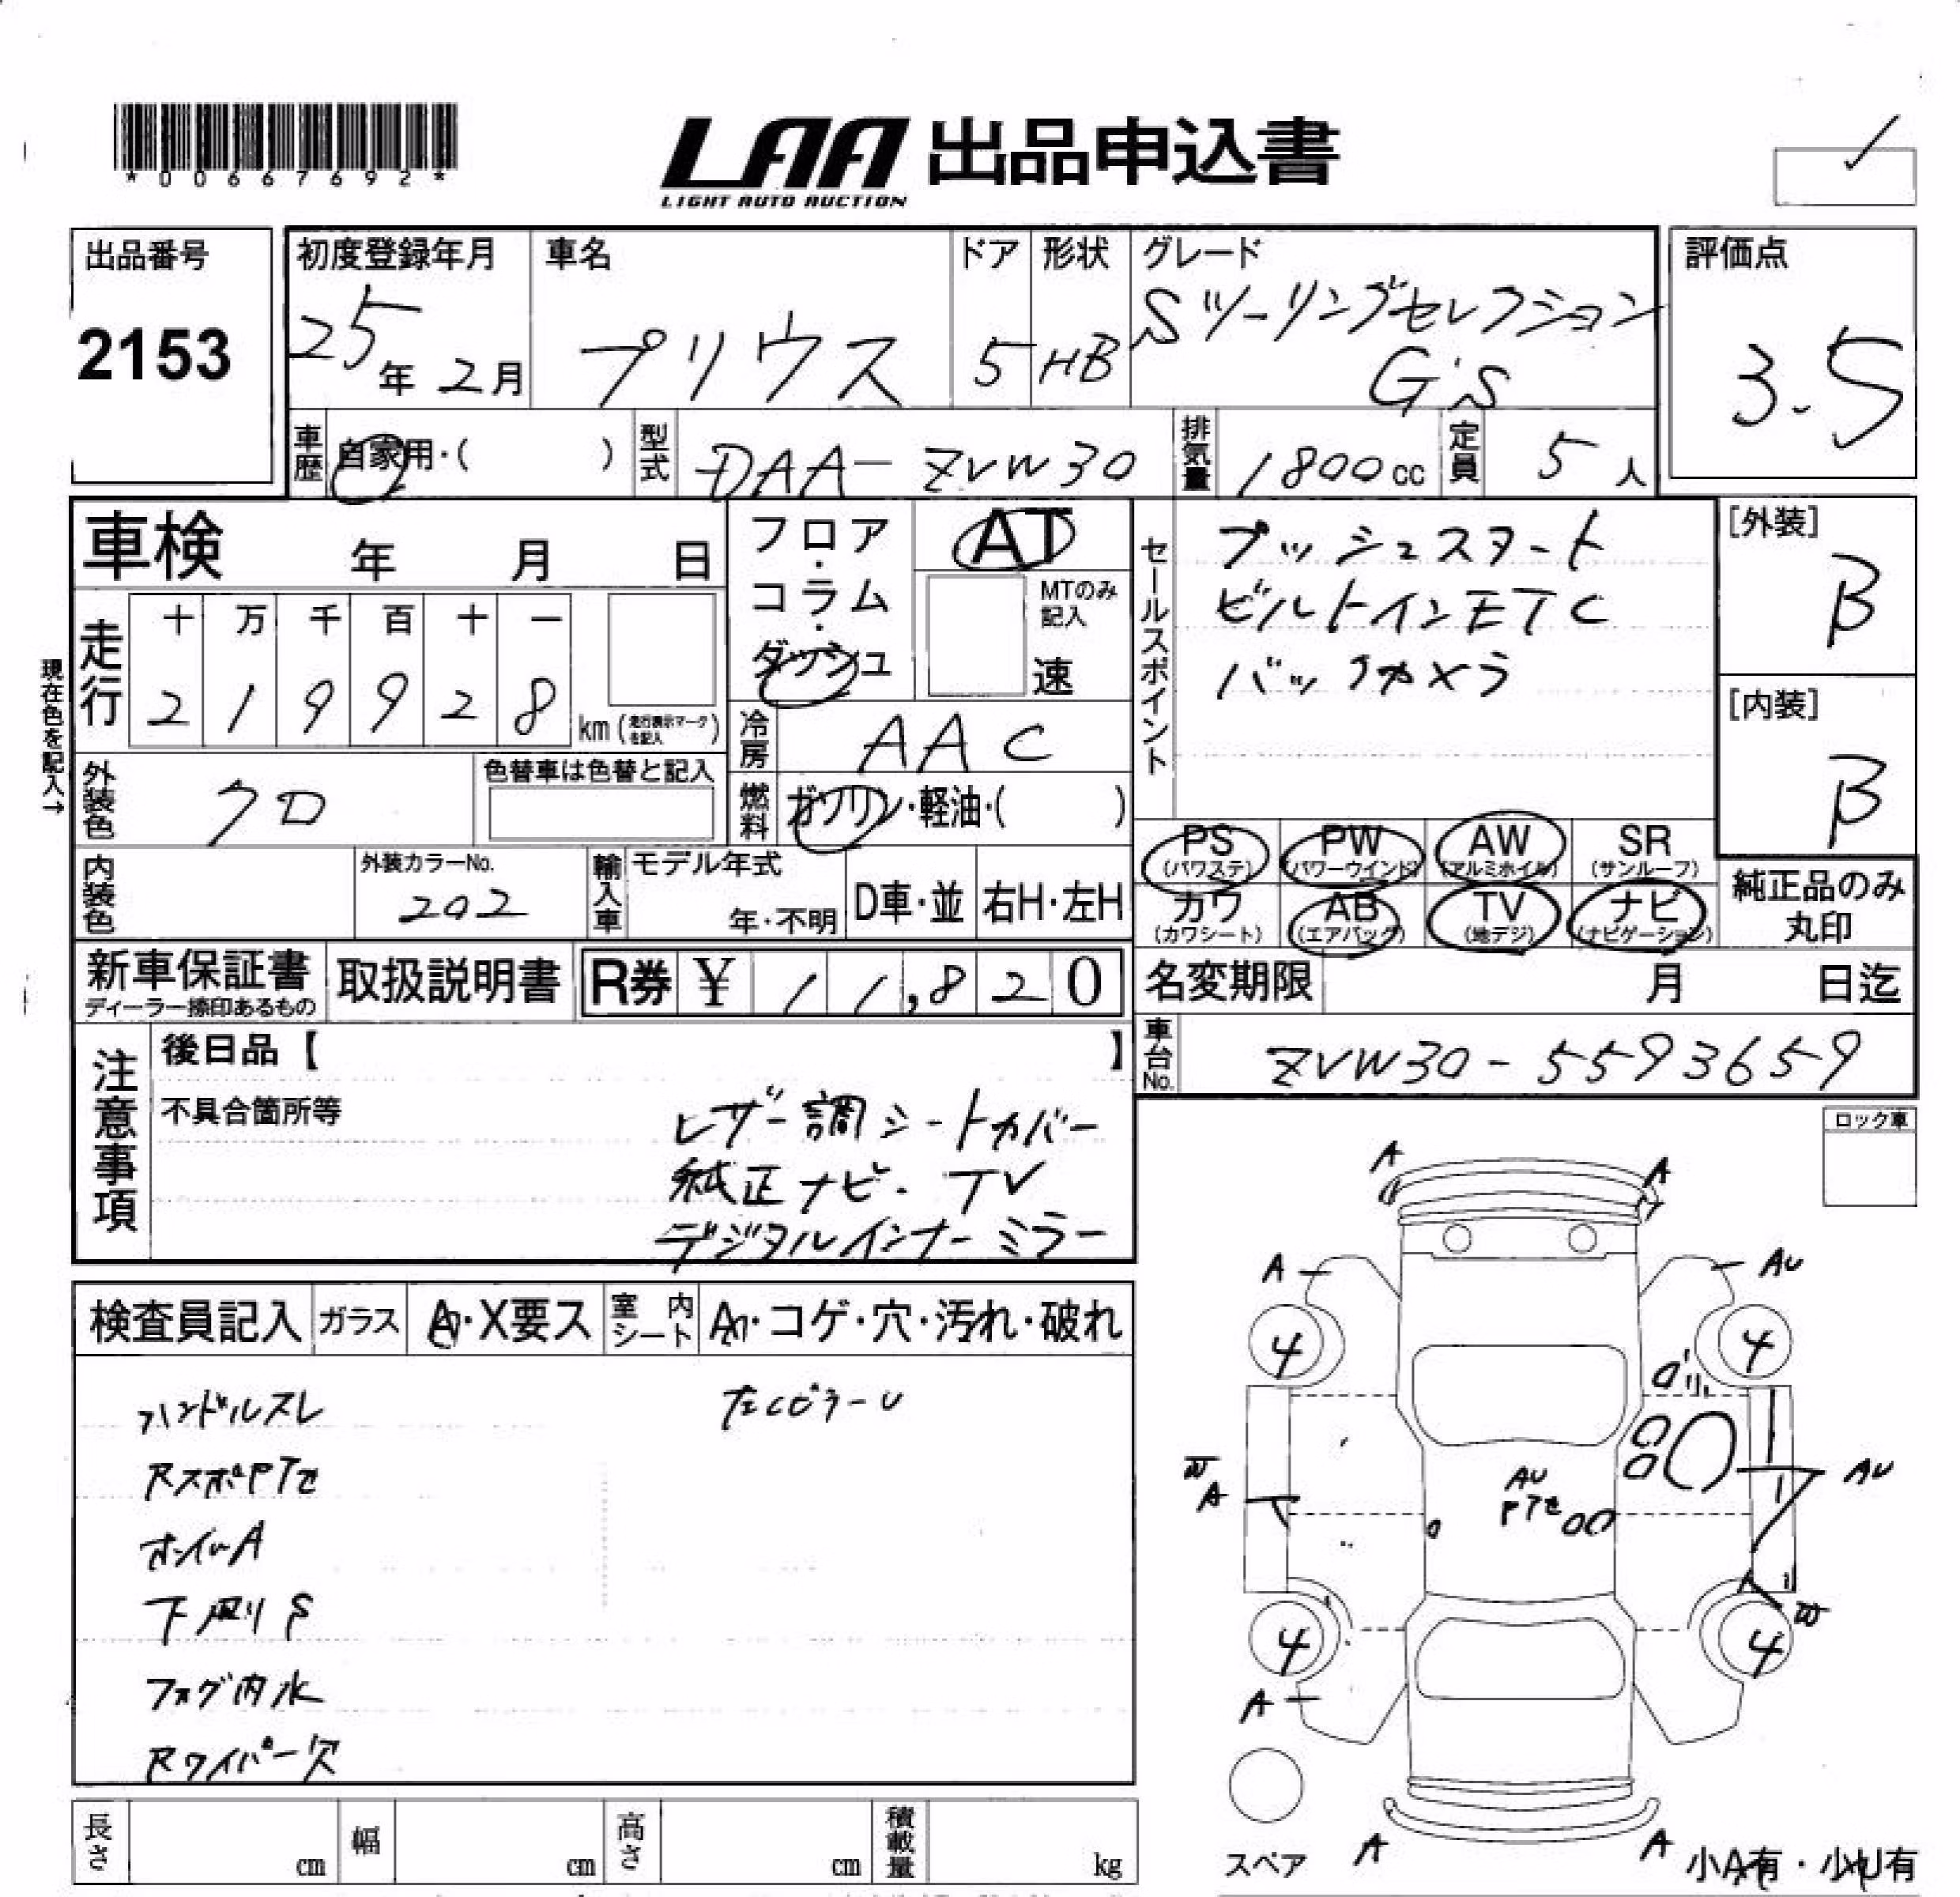 *00667692*
LAA 出品申込書
LIGHT AUTO AUCTION
出品番号
2153
初度登録年月
25年 2月
車名
プリウス
ドア
5
形状
HB
グレード
Sツーリングセレクション
G's
評価点
3.5
車歴
自家用・( )
型式
DAA-ZVW30
排気量
1800cc
定員
5人
車検 年 月 日
走行
十 万 千 百 十 一
2 1 9 9 2 8
km (走行表示マークを記入)
現在色を記入→
フロア・コラム・ダッシュ
AT
MTのみ記入
速
冷房
AAC
燃料
ガソリン・軽油・( )
セールスポイント
プッシュスタート
ビルトインETC
バックカメラ
[外装]
B
[内装]
B
外装色
クロ
色替車は色替と記入
内装色
外装カラーNo.
202
輸入車
モデル年式
年・不明
D車・並
右H・左H
PS
(パワステ)
PW
(パワーウインド)
AW
(アルミホイル)
SR
(サンルーフ)
カワ
(カワシート)
AB
(エアバッグ)
TV
(地デジ)
ナビ
(ナビゲーション)
純正品のみ
丸印
新車保証書
ディーラー捺印あるもの
取扱説明書
R券 ¥ 11,820
名変期限 月 日迄
車台No.
ZVW30-5593659
注意事項
後日品【 】
不具合箇所等
レザー調シートカバー
純正ナビ・TV
デジタルインナーミラー
ロック車
検査員記入
ガラス
A・X要ス
室内シート
A・コゲ・穴・汚れ・破れ
ハンドルスレ
左CピラーU
RスポPTセ
ホイルA
下廻りS
フォグ内水
Rワイパー欠
A
A
A
AU
4
4
AU
A
AU
PTセ
4
4
A
A
A
スペア
小A有・小U有
長さ cm
幅 cm
高さ cm
積載量 kg